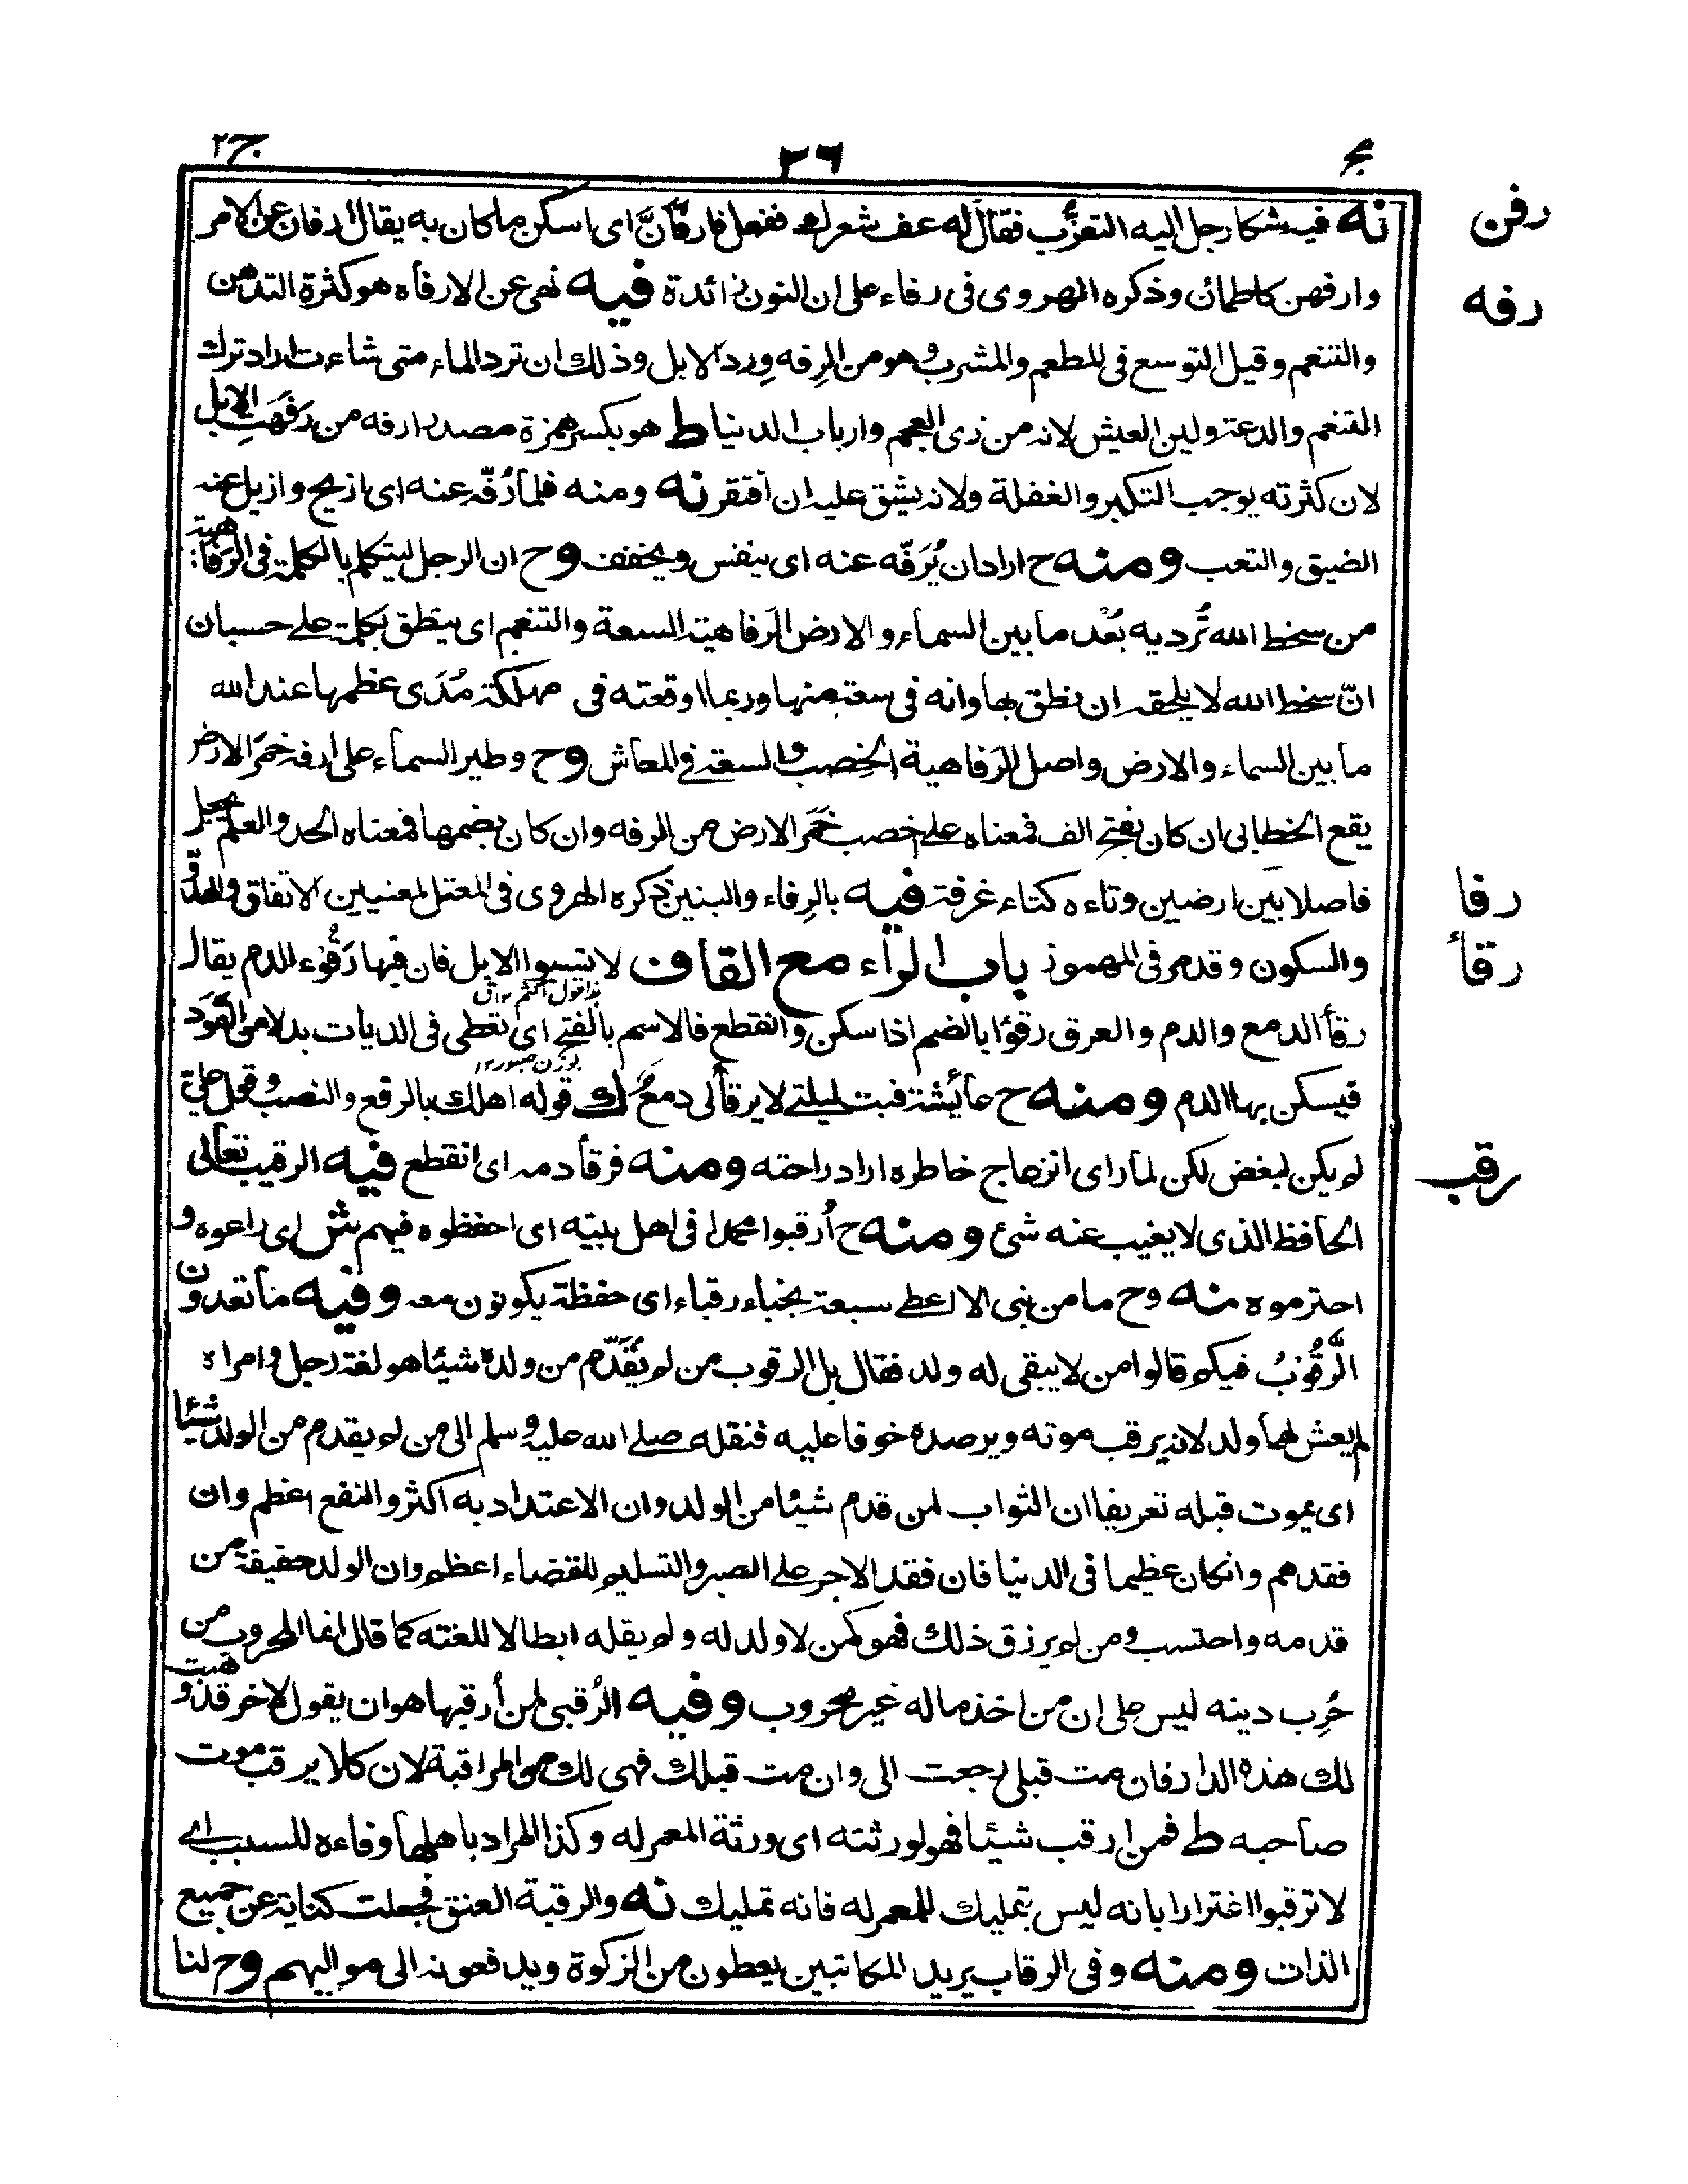 مج ٢٦ ج٢
نه فيه شكا رجل اليه التعزُّب فقال له عف شعرك ففعل فارفأنَّ اى اسكن ما كان به يقال ارفان عن الامر
رفن
وارفهن كاطمان وذكره الهروى فى رفاء على ان النون زائدة فيه نهى عن الارفاه هو كثرة التدهن
رفه
والتنعم وقيل التوسع فى المطعم والمشرب وهو من الرِفه وِرد الابل وذلك ان ترد الماء متى شاءت اراد ترك
التنعم والدعة ولين العيش لانه من زى العجم وارباب الدنيا ط هو بكسر همزة مصدر ارفه من رَفَهَتِ الابل
لان كثرته يوجب التكبر والغفلة ولانه يشق عليه ان افتقر نه ومنه فلما رُفّه عنه اى ازيح وازيل عنه
الضيق والتعب ومنه ح اراد ان يُرَفّه عنه اى ينفس ويخفف وح ان الرجل ليتكلم بالكلمة فى الرَفاهية
من سخط الله تُرديه بُعْد ما بين السماء والارض الرَفاهية السعة والتنعم اى ينطق بكلمة على حسبان
انّ سخط الله لا يلحقه ان نطق بها وانه فى سعة منها وربما اوقعته فى مهلكة مُدَى عظمها عند الله
ما بين السماء والارض واصل الرَفاهية الخِصب والسعة فى المعاش وح وطير السماء على ارفه خمَر الارض
يقع الخطابى ان كان بفتح الف فمعناه على خصب خَمَر الارض من الرفه وان كان بضمها فمعناه الحد والعلم يجعل
فاصلا بين ارضين وتاءه كتاء غرفة فيه بالرِفاء والبنين ذكره الهروى فى المعتل لمعنيين الاتفاق والهدوّ
رفا
والسكون وقد مر فى المهموز باب الراء مع القاف لا تسبوا الابل فان فيها رَقُوْء الدم يقال
رقأ
هذا قول اكثم ١٢ ق
رقأ الدمع والدم والعرق رقؤا بالضم اذا سكن وانقطع فالاسم بالفتح اى تعطى فى الديات بدلا من القَوَد
بوزن صبور ١٢
فيسكن بها الدم ومنه ح عائشة فبت ليلتى لا يرقأ لى دمعٌ ك قوله اهلك بالرفع والنصب وقول على
لم يكن لبغض لكن لما راى انزعاج خاطره اراد راحته ومنه فرقأ دمه اى انقطع فيه الرقيب تعالى
رقب
الحافظ الذى لا يغيب عنه شئ ومنه ح اُرقبوا محمدا فى اهل بيته اى احفظوه فيهم ش اى راعوه و
احترموه منه وح ما من نبى الا اعطى سبعة نجباء رقباء اى حفظة يكونون معه وفيه ما تعدون
الرَّقُوْبُ فيكم قالوا من لا يبقى له ولد فقال بل الرقوب من لم يُقَدّم من ولده شيئا هو لغة رجل وامراة
لم يعش لهما ولد لانه يرقب موته ويرصده خوفا عليه فنقله صلى الله عليه وسلم الى من لم يقدم من الولد شيئا
اى يموت قبله تعريفا ان الثواب لمن قدم شيئا من الولد وان الاعتداد به اكثر والنفع اعظم وان
فقدهم وانكان عظيما فى الدنيا فان فقد الاجر على الصبر والتسليم للقضاء اعظم وان الولد حقيقة من
قدمه واحتسب ومن لم يرزق ذلك فهو كمن لا ولد له ولم يقله ابطالا للغته كما قال انما المحروب من
حُرِب دينه ليس على ان من اخذ ماله غير محروب وفيه الرُقبى لمن أرقبها هو ان يقول لاخر قد وهبت
لك هذه الدار فان مت قبلى رجعت الى وان مت قبلك فهى لك من المراقبة لان كلا يرقب موت
صاحبه ط فمن ارقب شيئا فهو لورثته اى ورثة المعمر له وكذا المراد باهلها وفاءه للسبب اى
لا ترقبوا اغترارا بانه ليس بتمليك للمعمر له فانه تمليك نه والرقبة العنق فجعلت كناية عن جميع
الذات ومنه وفى الرقاب يريد المكاتبين يعطون من الزكوة ويدفعونه الى مواليهم وح لنا